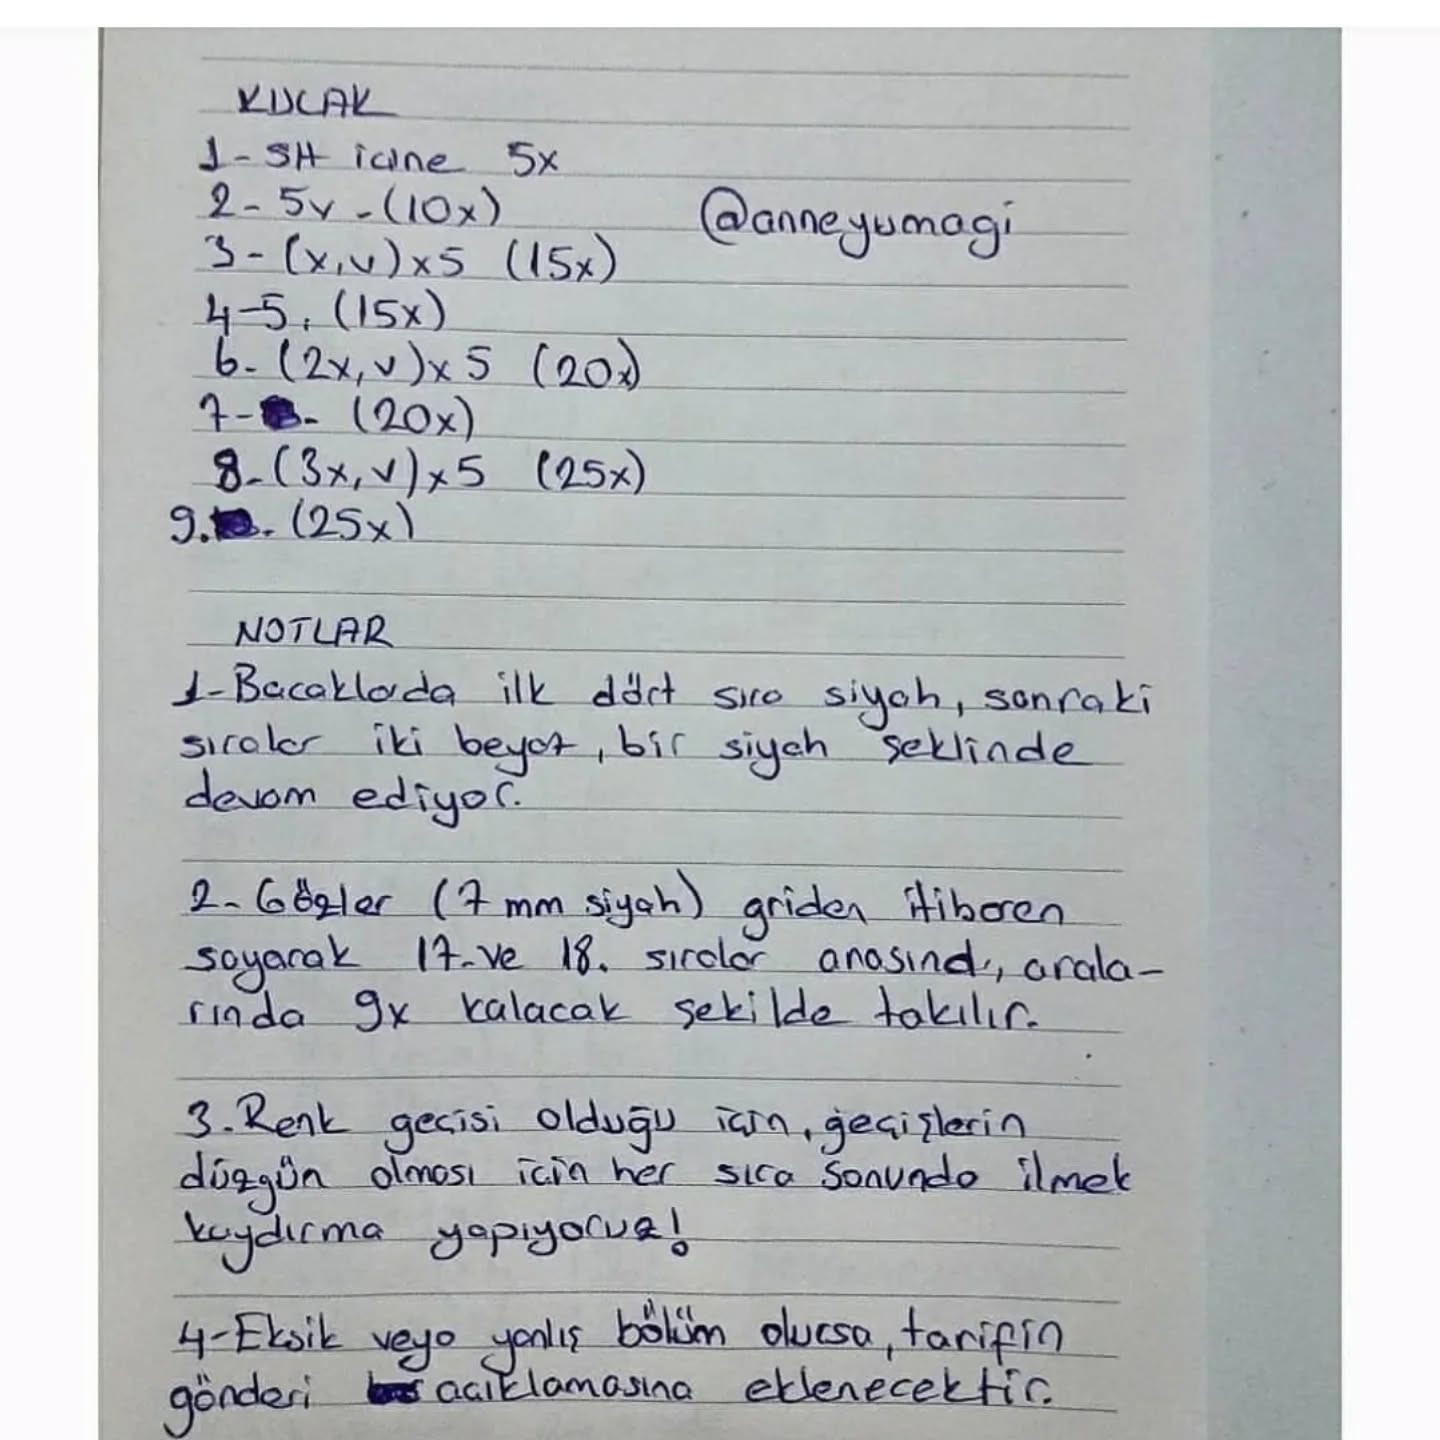 KUCAK
1- SH içine 5x
2- 5v -(10x)
@anneyumagi
3- (x,v)x5 (15x)
4-5. (15x)
6- (2x,v)x5 (20x)
7- - (20x)
8- (3x,v)x5 (25x)
9. - (25x)
NOTLAR
1- Bacaklarda ilk dört sıra siyah, sonraki
sıralar iki beyaz, bir siyah şeklinde
devam ediyor.
2- Gözler (7 mm siyah) griden itibaren
sayarak 17. ve 18. sıralar anasınd, arala-
rında 9x kalacak şekilde takılır.
3. Renk geçişi olduğu için, geçişlerin
düzgün olması için her sıra sonunda ilmek
kaydırma yapıyoruz!
4- Eksik veya yanlış bölüm olursa, tarifin
gönderi açıklamasına eklenecektir.